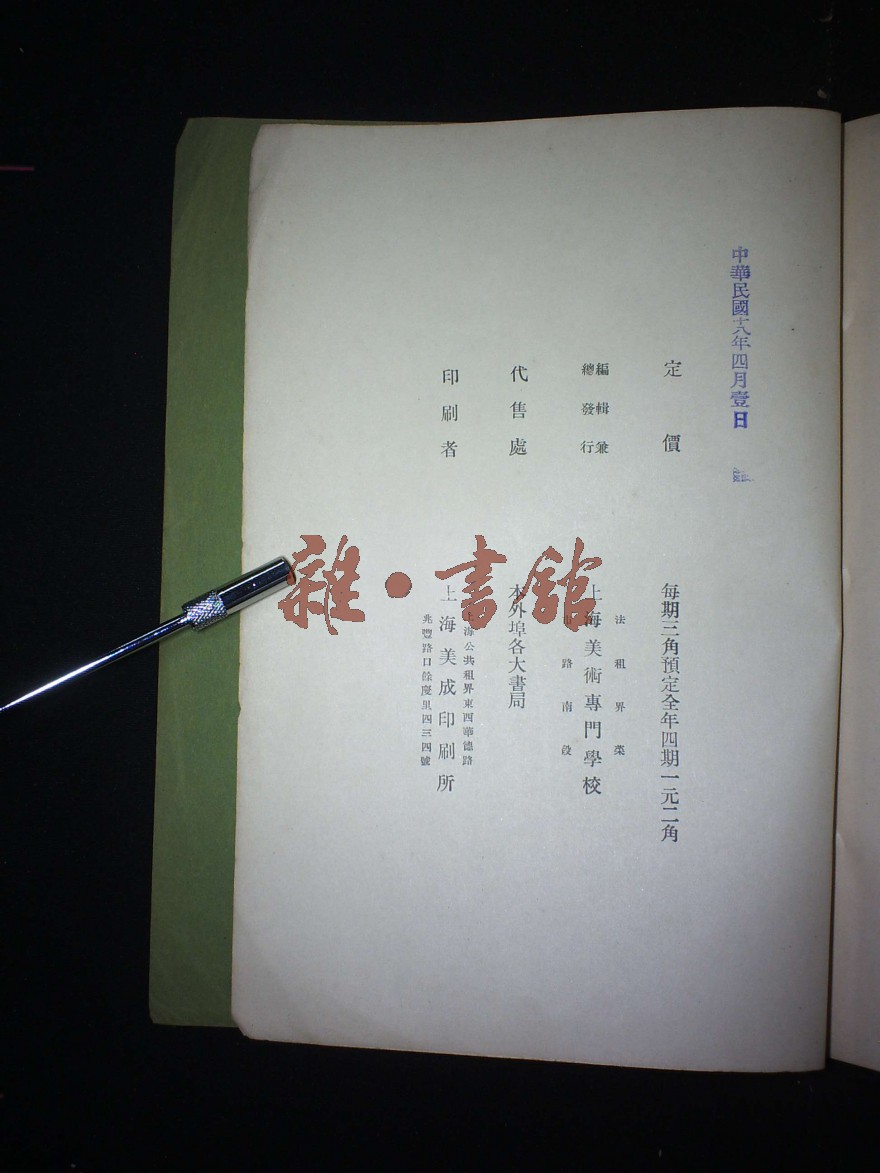 中華民國十八年四月壹日
定價
每期三角預定全年四期一元二角
編輯兼
總發行
法租界菜
路南段
上海美術專門學校
代售處
本外埠各大書局
印刷者
上海公共租界東西華德路
上海美成印刷所
兆豐路口餘慶里四三四號
雜·書館